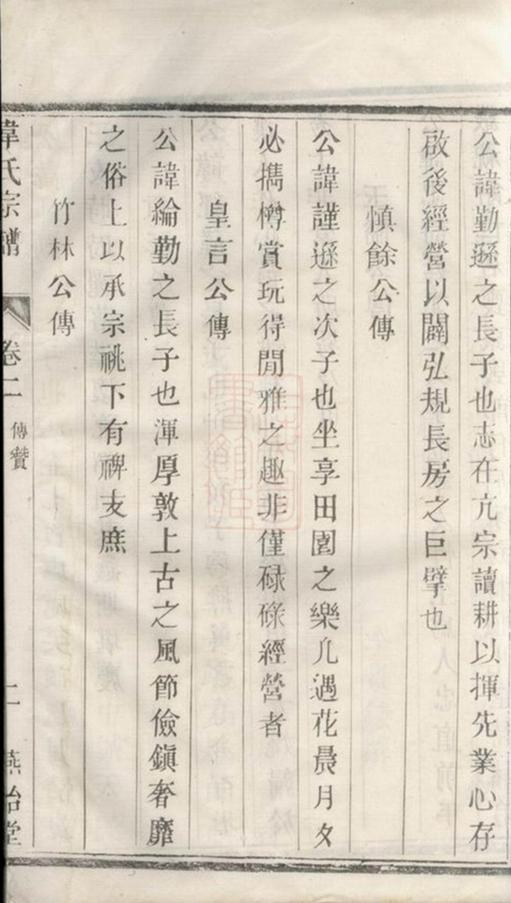 公諱勤遜之長子也志在亢宗讀耕以揮先業心存
啟後經營以闢弘規長房之巨擘也
慎餘公傳
公諱謹遜之次子也坐享田園之樂凡遇花晨月夕
必携樽賞玩得閒雅之趣非僅碌碌經營者
皇言公傳
公諱綸勤之長子也渾厚敦上古之風節儉鎮奢靡
之俗上以承宗祧下有禆支庶
竹林公傳
韋氏宗譜 卷二 傳贊 二 燕怡堂